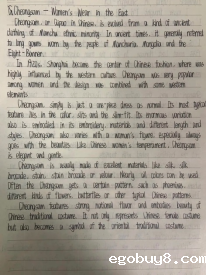 5. Cheongsam - Women's Wear in the East
Cheongsam or Qipao in Chinese is evolved from a kind of ancient
clothing of Manchu ethnic minority. In ancient times it generally referred
to long gowns worn by the people of Manchuria, Mongolia and the
Eight-Banner.
In 1920s Shanghai became the center of Chinese fashion where was
highly influenced by the western culture. Cheongsam was very popular
among women and the design was combined with some western
elements.
Cheongsam simply is just a one-piece dress as normal. Its most typical
feature lies in the collar, slits and the slim-fit. Its enormous variation
also is embodied in its embroidery, materials and different lengths and
styles. Cheongsam also varies with a woman's figure, especially always
goes with the beauties. Like Chinese women's temperament, Cheongsam
is elegant and gentle.
Cheongsam is usually made of excellent materials like silk, silk
brocade, satin, satin brocade or velour. Nearly all colors can be used.
Often the Cheongsam gets a certain pattern, such as phoenixes,
different kinds of flowers, butterflies or other typical Chinese patterns.
Cheongsam features strong national flavor and embodies beauty of
Chinese traditional costume. It not only represents Chinese female costume
but also becomes a symbol of the oriental traditional costume.
egobuy8.com